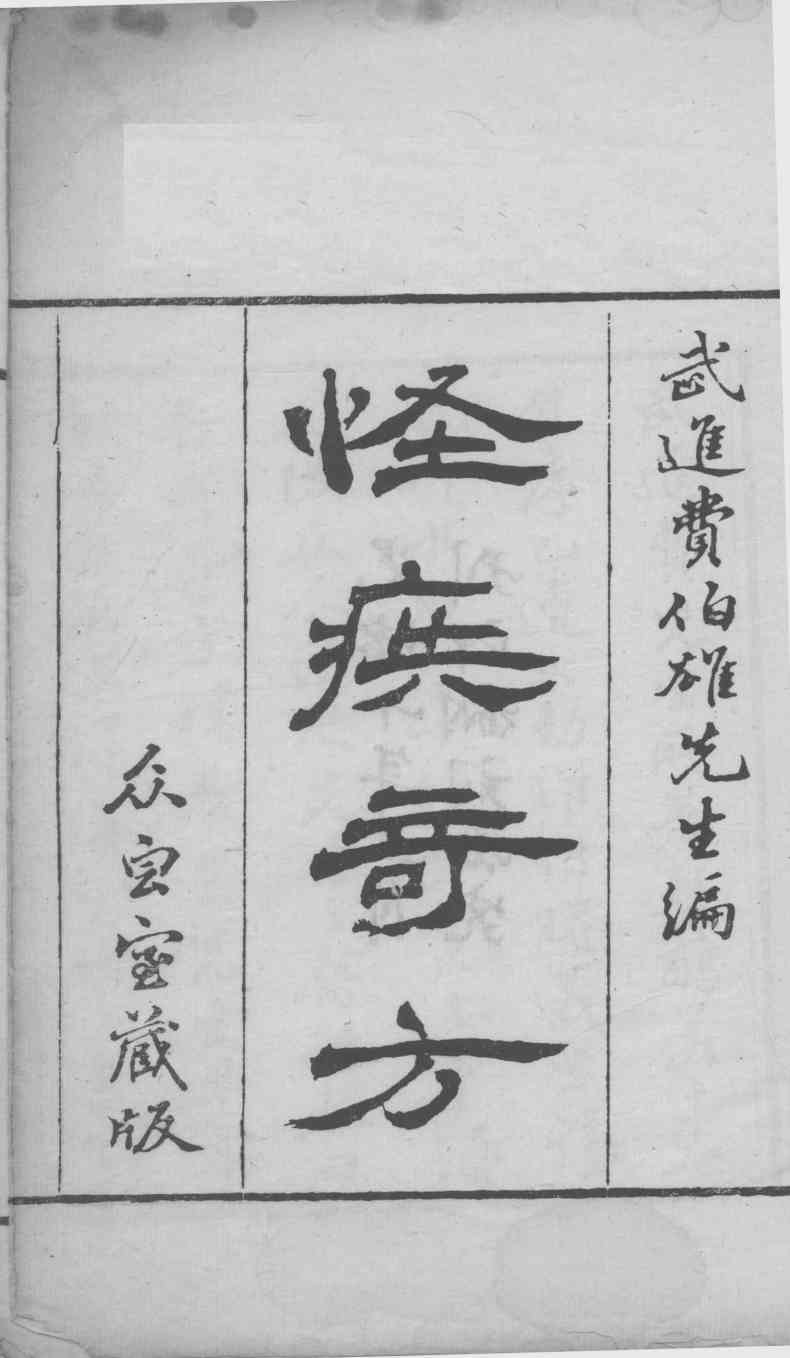 武進費伯雄先生編
怪疾奇方
众室藏版